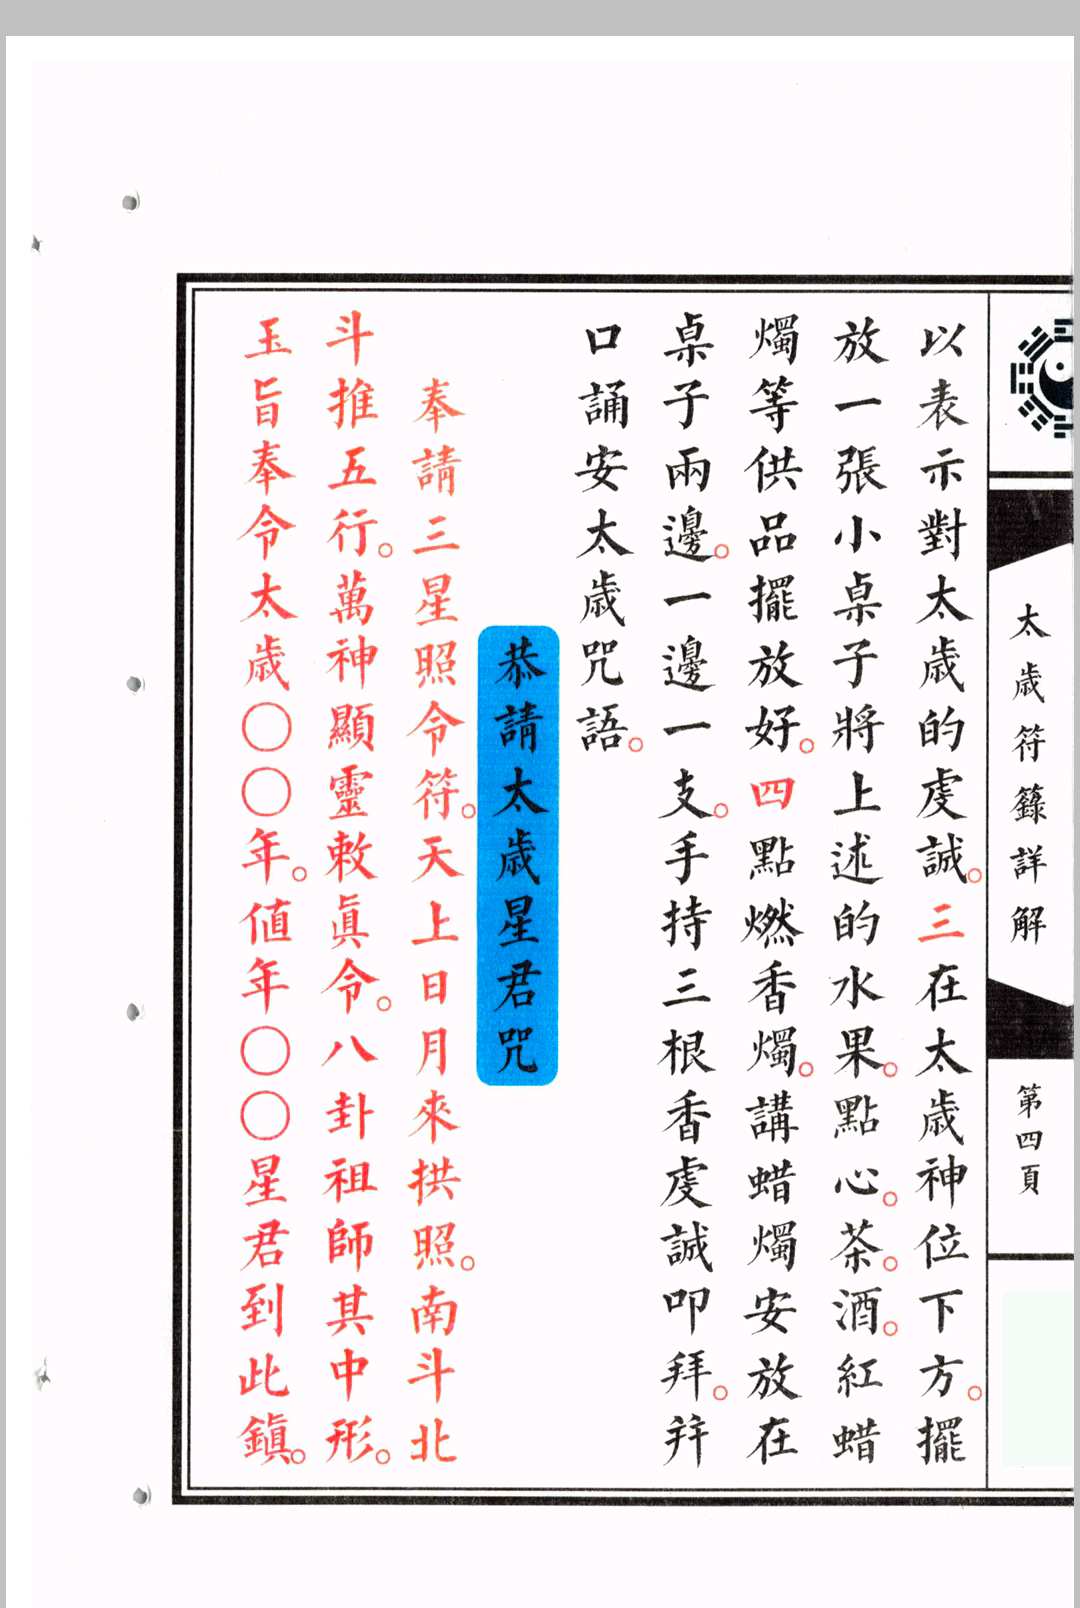 太歲符籙詳解
第四頁
以表示對太歲的虔誠。三在太歲神位下方。擺
放一張小桌子將上述的水果。點心。茶。酒。紅蜡
燭等供品擺放好。四點燃香燭。講蜡燭安放在
桌子兩邊。一邊一支。手持三根香虔誠叩拜。并
口誦安太歲咒語。
恭請太歲星君咒
奉請三星照令符。天上日月來拱照。南斗北
斗推五行。萬神顯靈敕真令。八卦祖師其中形。
玉旨奉令太歲〇〇年。值年〇〇星君到此鎮。